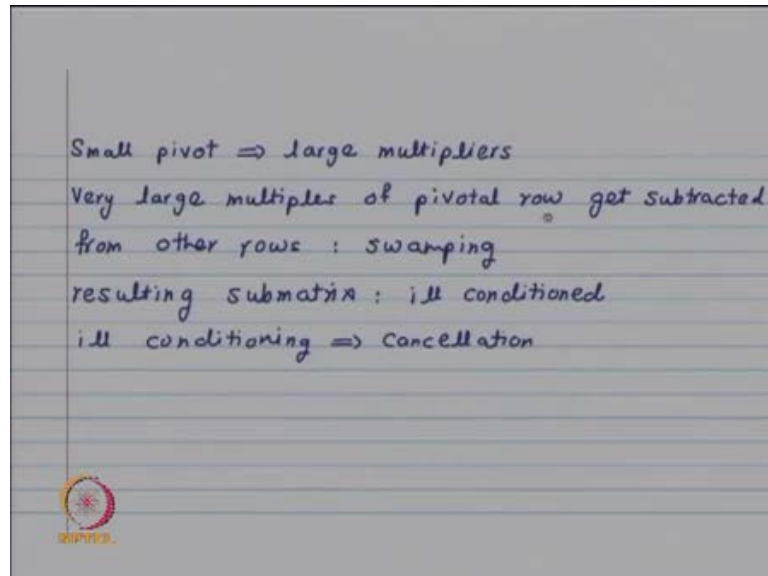 Small pivot ⇒ large multipliers
Very large multiples of pivotal row get subtracted
from other rows : swamping
resulting submatrix : ill conditioned
ill conditioning ⇒ Cancellation
NPTEL